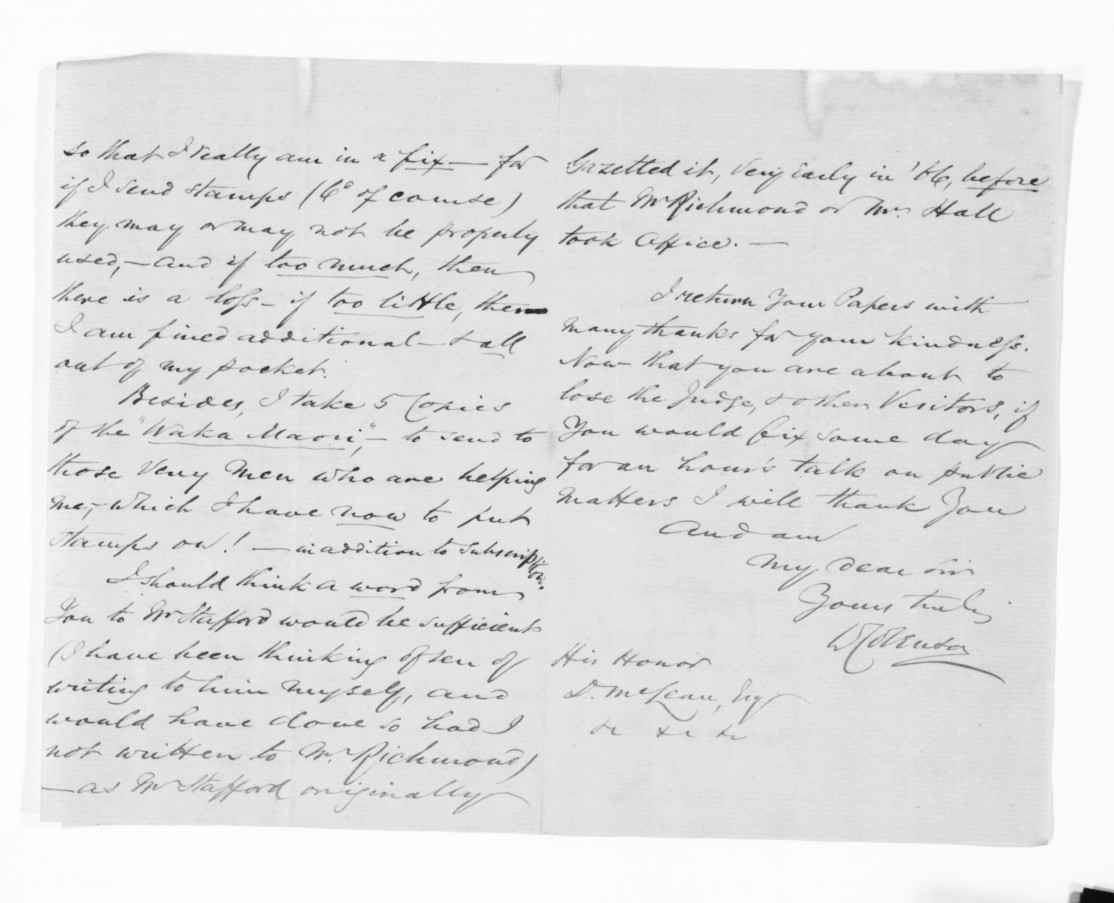 so that I really am in a fix — for
if I send stamps (6d of course)
they may or may not be properly
used, — and if too much, then
there is a loss — if too little, then
I am fined additional — & all
out of my pocket.
Besides, I take 5 Copies
of the "Waka Maori", — to send to
those very men who are helping
me, — which I have now to put
stamps on! — in addition to subscription.
I should think a word from
You to Mr Stafford would be sufficient
(I have been thinking often of
writing to him myself, and
would have done so had I
not written to Mr. Richmond)
— as Mr Stafford originally
Gazetted it, very early in '66, before
that Mr Richmond or Mr. Hall
took office. —
I return Your Papers with
many thanks for your kindness.
Now that you are about to
lose the Judge, & other Visitors, if
You would fix some day
for an hour's talk on public
matters I will thank You
and am
My dear Sir
Yours truly
W Colenso
His Honor
D. McLean, Esq
&c &c &c